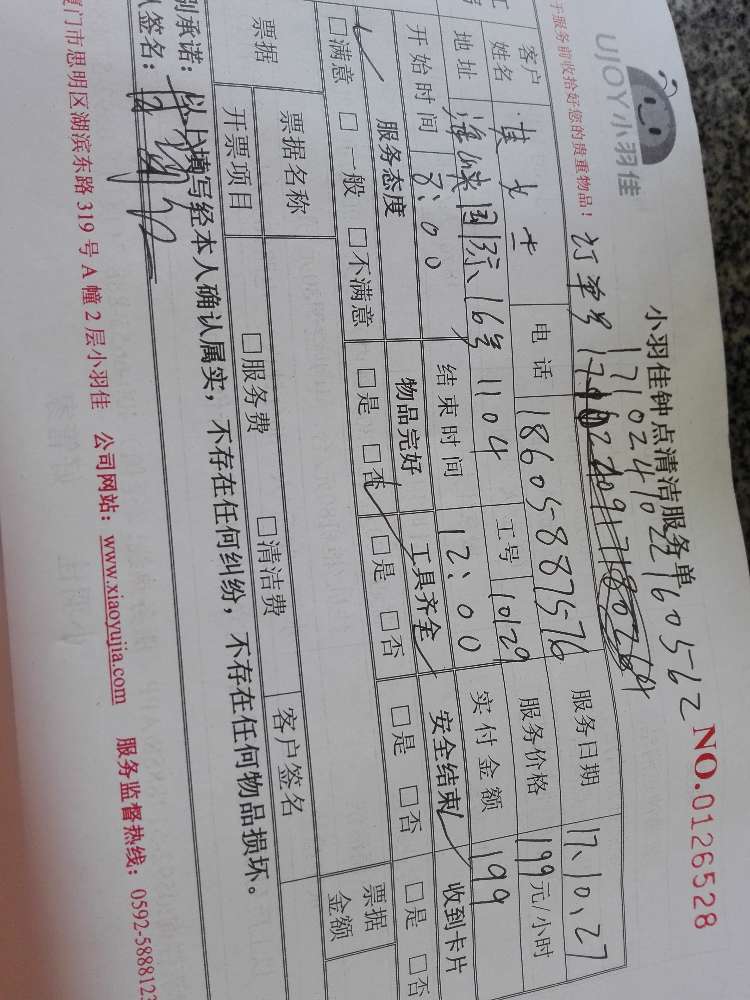 UJOY小羽佳
小羽佳钟点清洁服务单
NO.0126528
于服务前收拾好您的贵重物品！
订单号
17102470221605612
服务日期 17.10.27
客户姓名 电话 18605887576 服务价格 199元/小时
地址 海峡国际16号1104 工号 1029 实付金额 199
开始时间 8:00 结束时间 12:00
服务态度 物品完好 工具齐全 安全结束 收到卡片
□满意 □一般 □不满意 □是 □否 □是 □否 □是 □否 □是 □否
票据 票据名称 □服务费 □清洁费 客户签名 票据金额
开票项目
别承诺：以上填写经本人确认属实，不存在任何纠纷，不存在任何物品损坏。
人签名：
厦门市思明区湖滨东路319号A幢2层小羽佳 公司网站：www.xiaoyujia.com 服务监督热线：0592-5888123